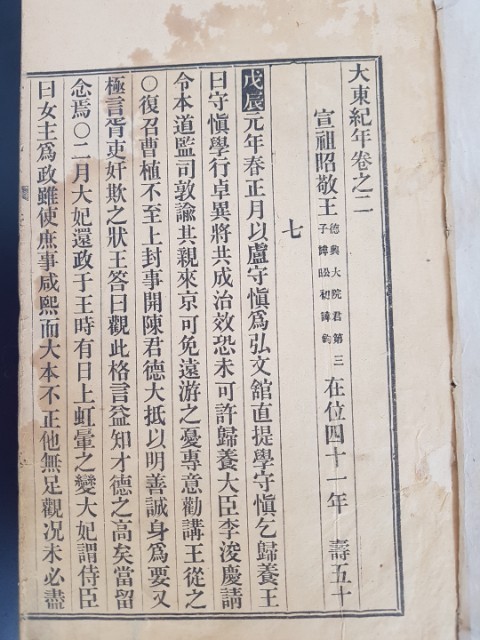 大東紀年卷之二
宣祖昭敬王 德興大院君第三子諱昖初諱鈞 在位四十一年 壽五十
七
戊辰元年春正月以盧守愼爲弘文舘直提學守愼乞歸養王
曰守愼學行卓異將共成治效恐未可許歸養大臣李浚慶請
令本道監司敦諭其親來京可免遠游之憂專意勸講王從之
○復召曹植不至上封事開陳君德大抵以明善誠身爲要又
極言胥吏奸欺之狀王答曰觀此格言益知才德之高矣當留
念焉○二月大妃還政于王時有日上虹暈之變大妃謂侍臣
曰女主爲政雖使庶事咸熙而大本不正他無足觀况未必盡